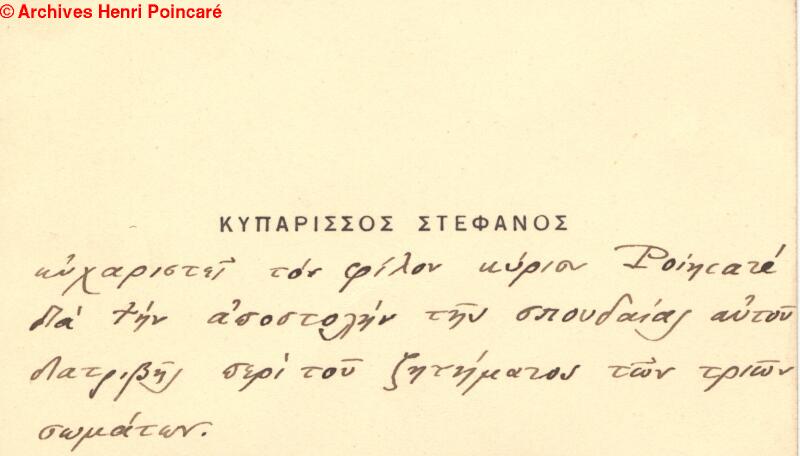 © Archives Henri Poincaré
ΚΥΠΑΡΙΣΣΟΣ ΣΤΕΦΑΝΟΣ
εὐχαριστεῖ τόν φίλον κύριον Poincaré
διά τήν ἀποστολήν τῆς σπουδαίας αὐτοῦ
διατριβῆς περί τοῦ ζητήματος τῶν τριῶν
σωμάτων.